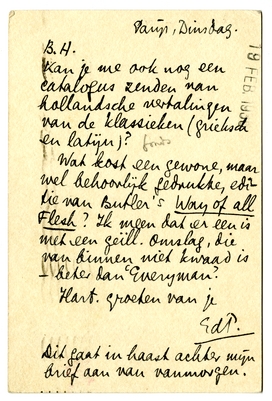 Parijs, Dinsdag.
B. H.
Kan je me ook nog een
catalogus zenden van
hollandsche vertalingen
van de klassieken (grieksch
en latijn)?
fonds
Wat kost een gewone, maar
wel behoorlijk gedrukte, edi-
tie van Butler's Way of all
Flesh? Ik meen dat er een is
met een geïll. omslag, die
van binnen niet kwaad is
– beter dan Everyman?
Hart. groeten van je
EdP.
Dit gaat in haast achter mijn
brief aan van vanmorgen.
19 FEB. 19